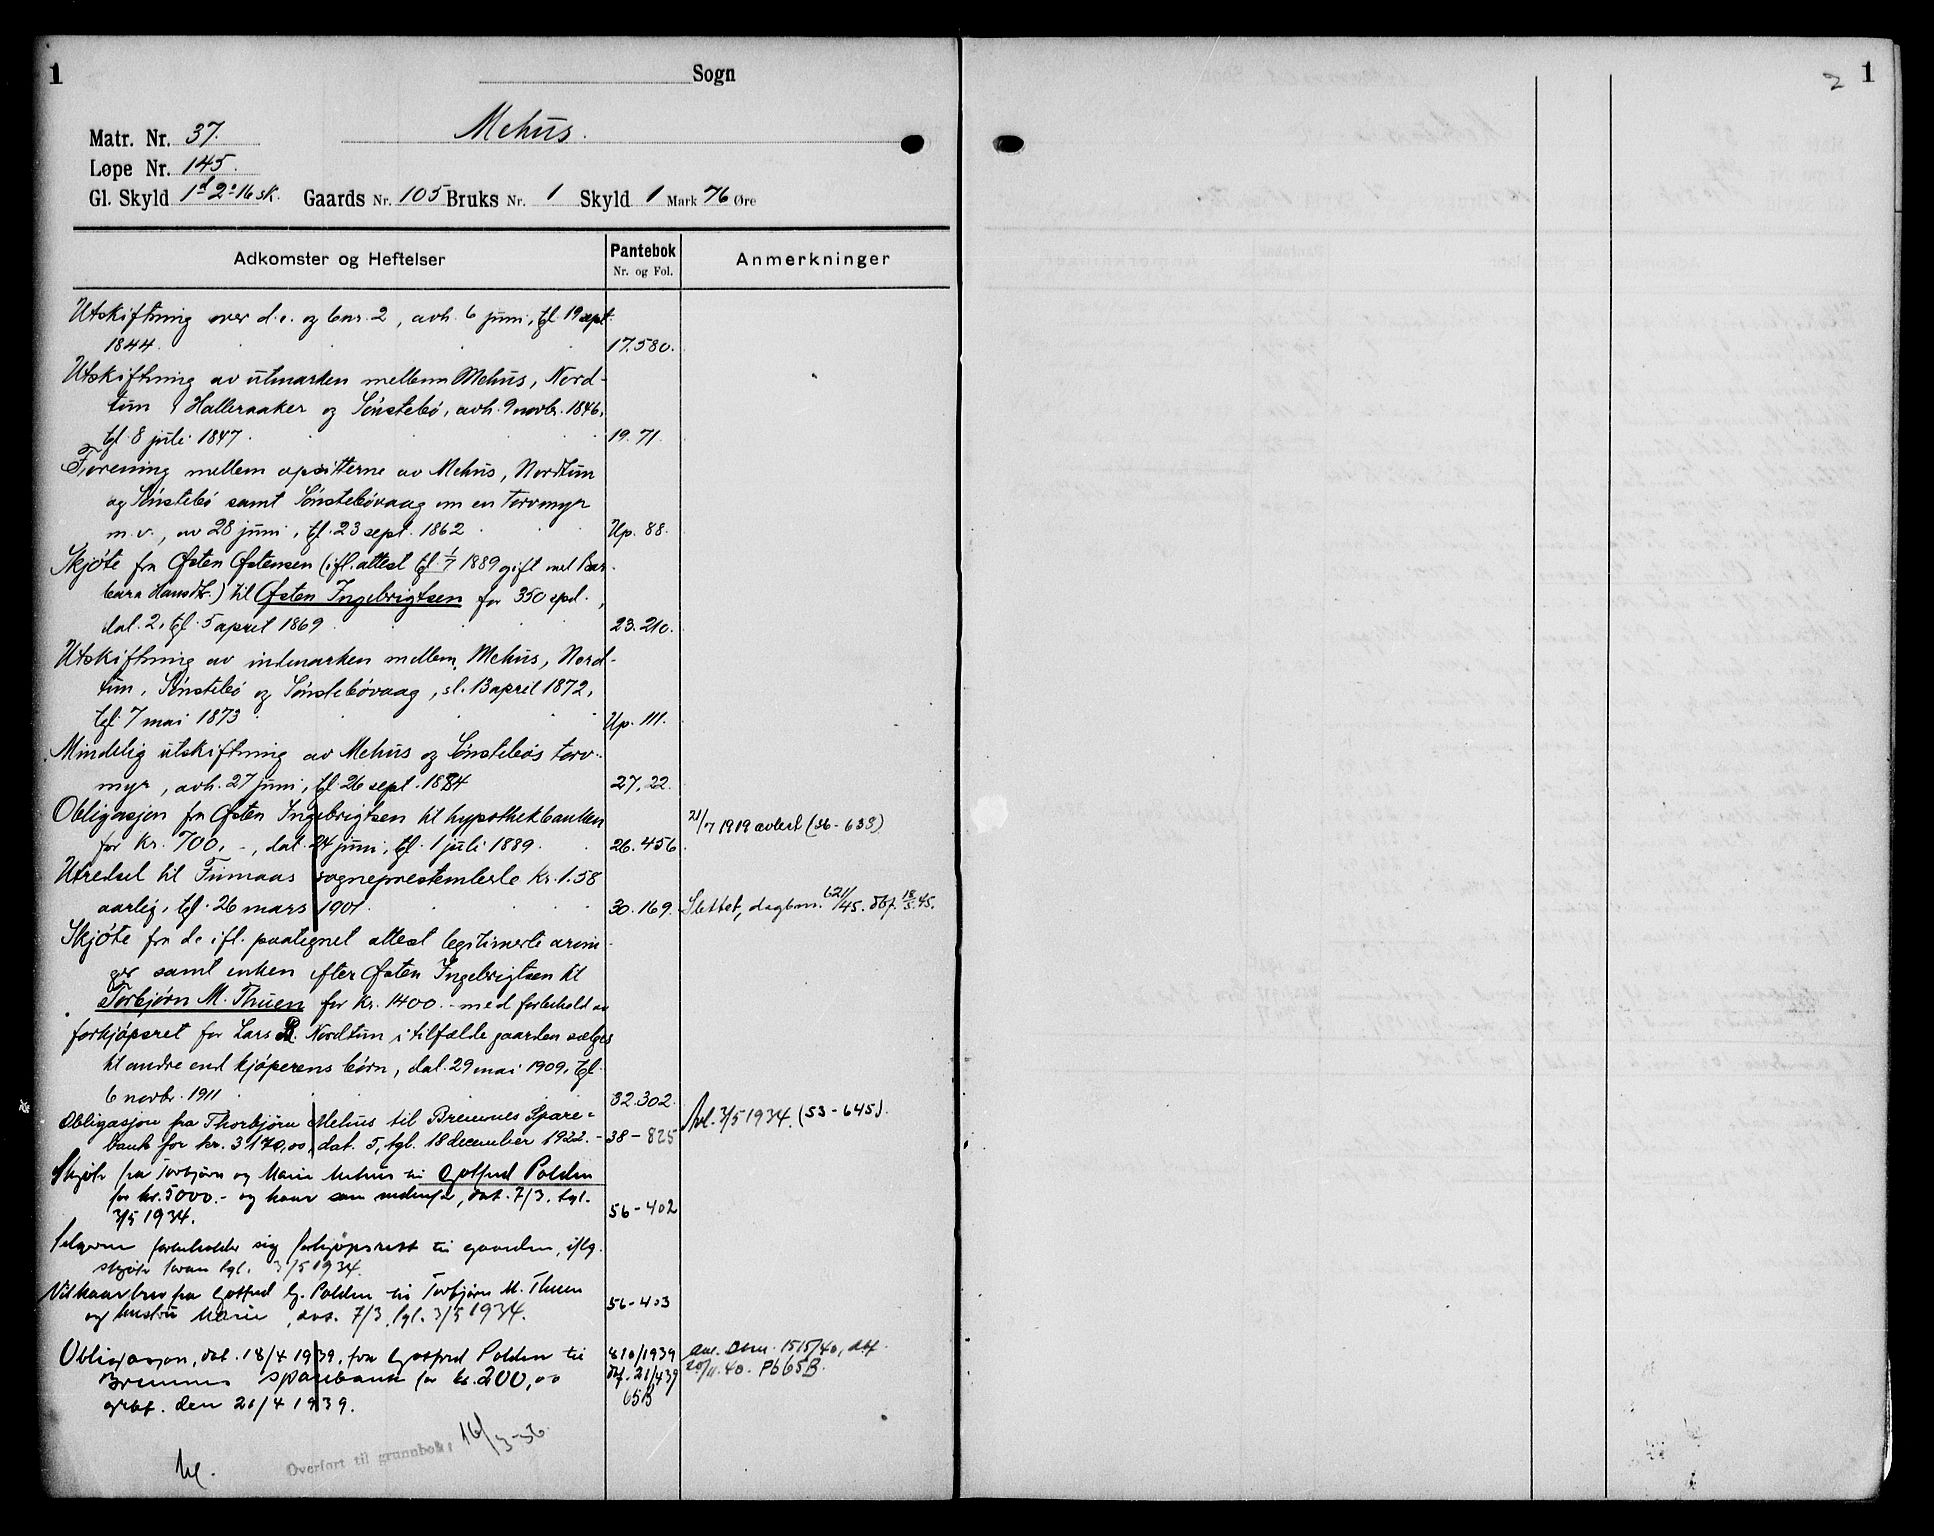 1
Sogn
Mehus.
Matr. Nr. 37.
Løpe Nr. 145.
Gl. Skyld 1d 2o 16 sk. Gaards Nr. 105 Bruks Nr. 1 Skyld 1 Mark 76 Øre
Adkomster og Heftelser
Pantebok
Nr. og Fol.
Anmerkninger
Utskiftning over d.e. og bnr. 2, avh. 6 juni, tgl. 19 sept.
1844. 17.580.
Utskiftning av utmarken mellem Mehus, Nord-
tun, Halleraaker og Sónstebó, avh. 9 novbr. 1846,
tgl. 8 juli 1847. 19.71.
Forening mellem opsitterne av Mehus, Nordtun
og Sónstebó samt Sónstebóvaag om en torvmyr
m.v., av 28 juni, tgl. 23 sept. 1862. Up. 88.
Skjóte fra Østen Østensen (ifl. attest tgl. 1/7 1889 gift med Bar-
bara Hansdtr.) til Østen Ingebrigtsen for 350 spd.,
dat. 2, tgl. 5 april 1869. 23.210.
Utskiftning av indmarken mellem Mehus, Nord-
tun, Sónstebó og Sónstebóvaag, sl. 13 april 1872,
tgl. 7 mai 1873. Up. 111.
Mindelig utskiftning av Mehus og Sónstebós torv-
myr, avh. 27 juni, tgl. 26 sept. 1884 27.22.
Obligasjon fra Østen Ingebrigtsen til hypothekbanken
for kr. 700,-, dat. 24 juni, tgl. 1 juli 1889. 26.456. 21/7 1919 avlest (36-638)
Utredsel til Finnaas sogneprestembede kr. 1.58
aarlig, tgl. 26 mars 1901. 30.169. Slettet, dagbnr. 621/45. dbf. 18/5.45.
Skjóte fra de ifl. paategnet attest legitimerte arvin-
ger samt enken efter Østen Ingebrigtsen til
Torbjørn M. Thuen for kr. 1400.- med forbehold av
forkjópsret for Lars B. Nordtun i tilfælde gaarden sælges
til andre end kjóperens bórn, dat. 29 mai 1909, tgl.
6 novbr. 1911. 32.302.
Obligasjon fra Thorbjörn Mehus til Bremnes Spare-
bank for kr. 3170,00, dat. 5, tgl. 18 december 1922. - 38-825 Avl. 3/5 1934. (53-645).
Skjøte fra Torbjørn og Marie Mehus til Gotfred Polden
for kr. 5000.- og kaar som nedenfor, dat. 7/3, tgl.
3/5 1934. 56-402
Selgerne forbeholder sig forkjøpsrett til gaarden, iflg.
skjøte tgl. 3/5 1934.
Vilkaarbrev fra Gotfred G. Polden til Torbjørn M. Thuen
og hustru Marie, dat. 7/3, tgl. 3/5 1934. 56-403
Obligasjon, dat. 18/4 1939, fra Gotfred Polden til
Bremnes Sparebank for kr. 200,00
grbf. den 21/4 1939.
810/1939
dbf. 21/4 39
65B
avl. Dbnr. 1515/40, dbf.
20/11.40. Pb 65B.
Overført til grunnbok: 16/3-56
1
2